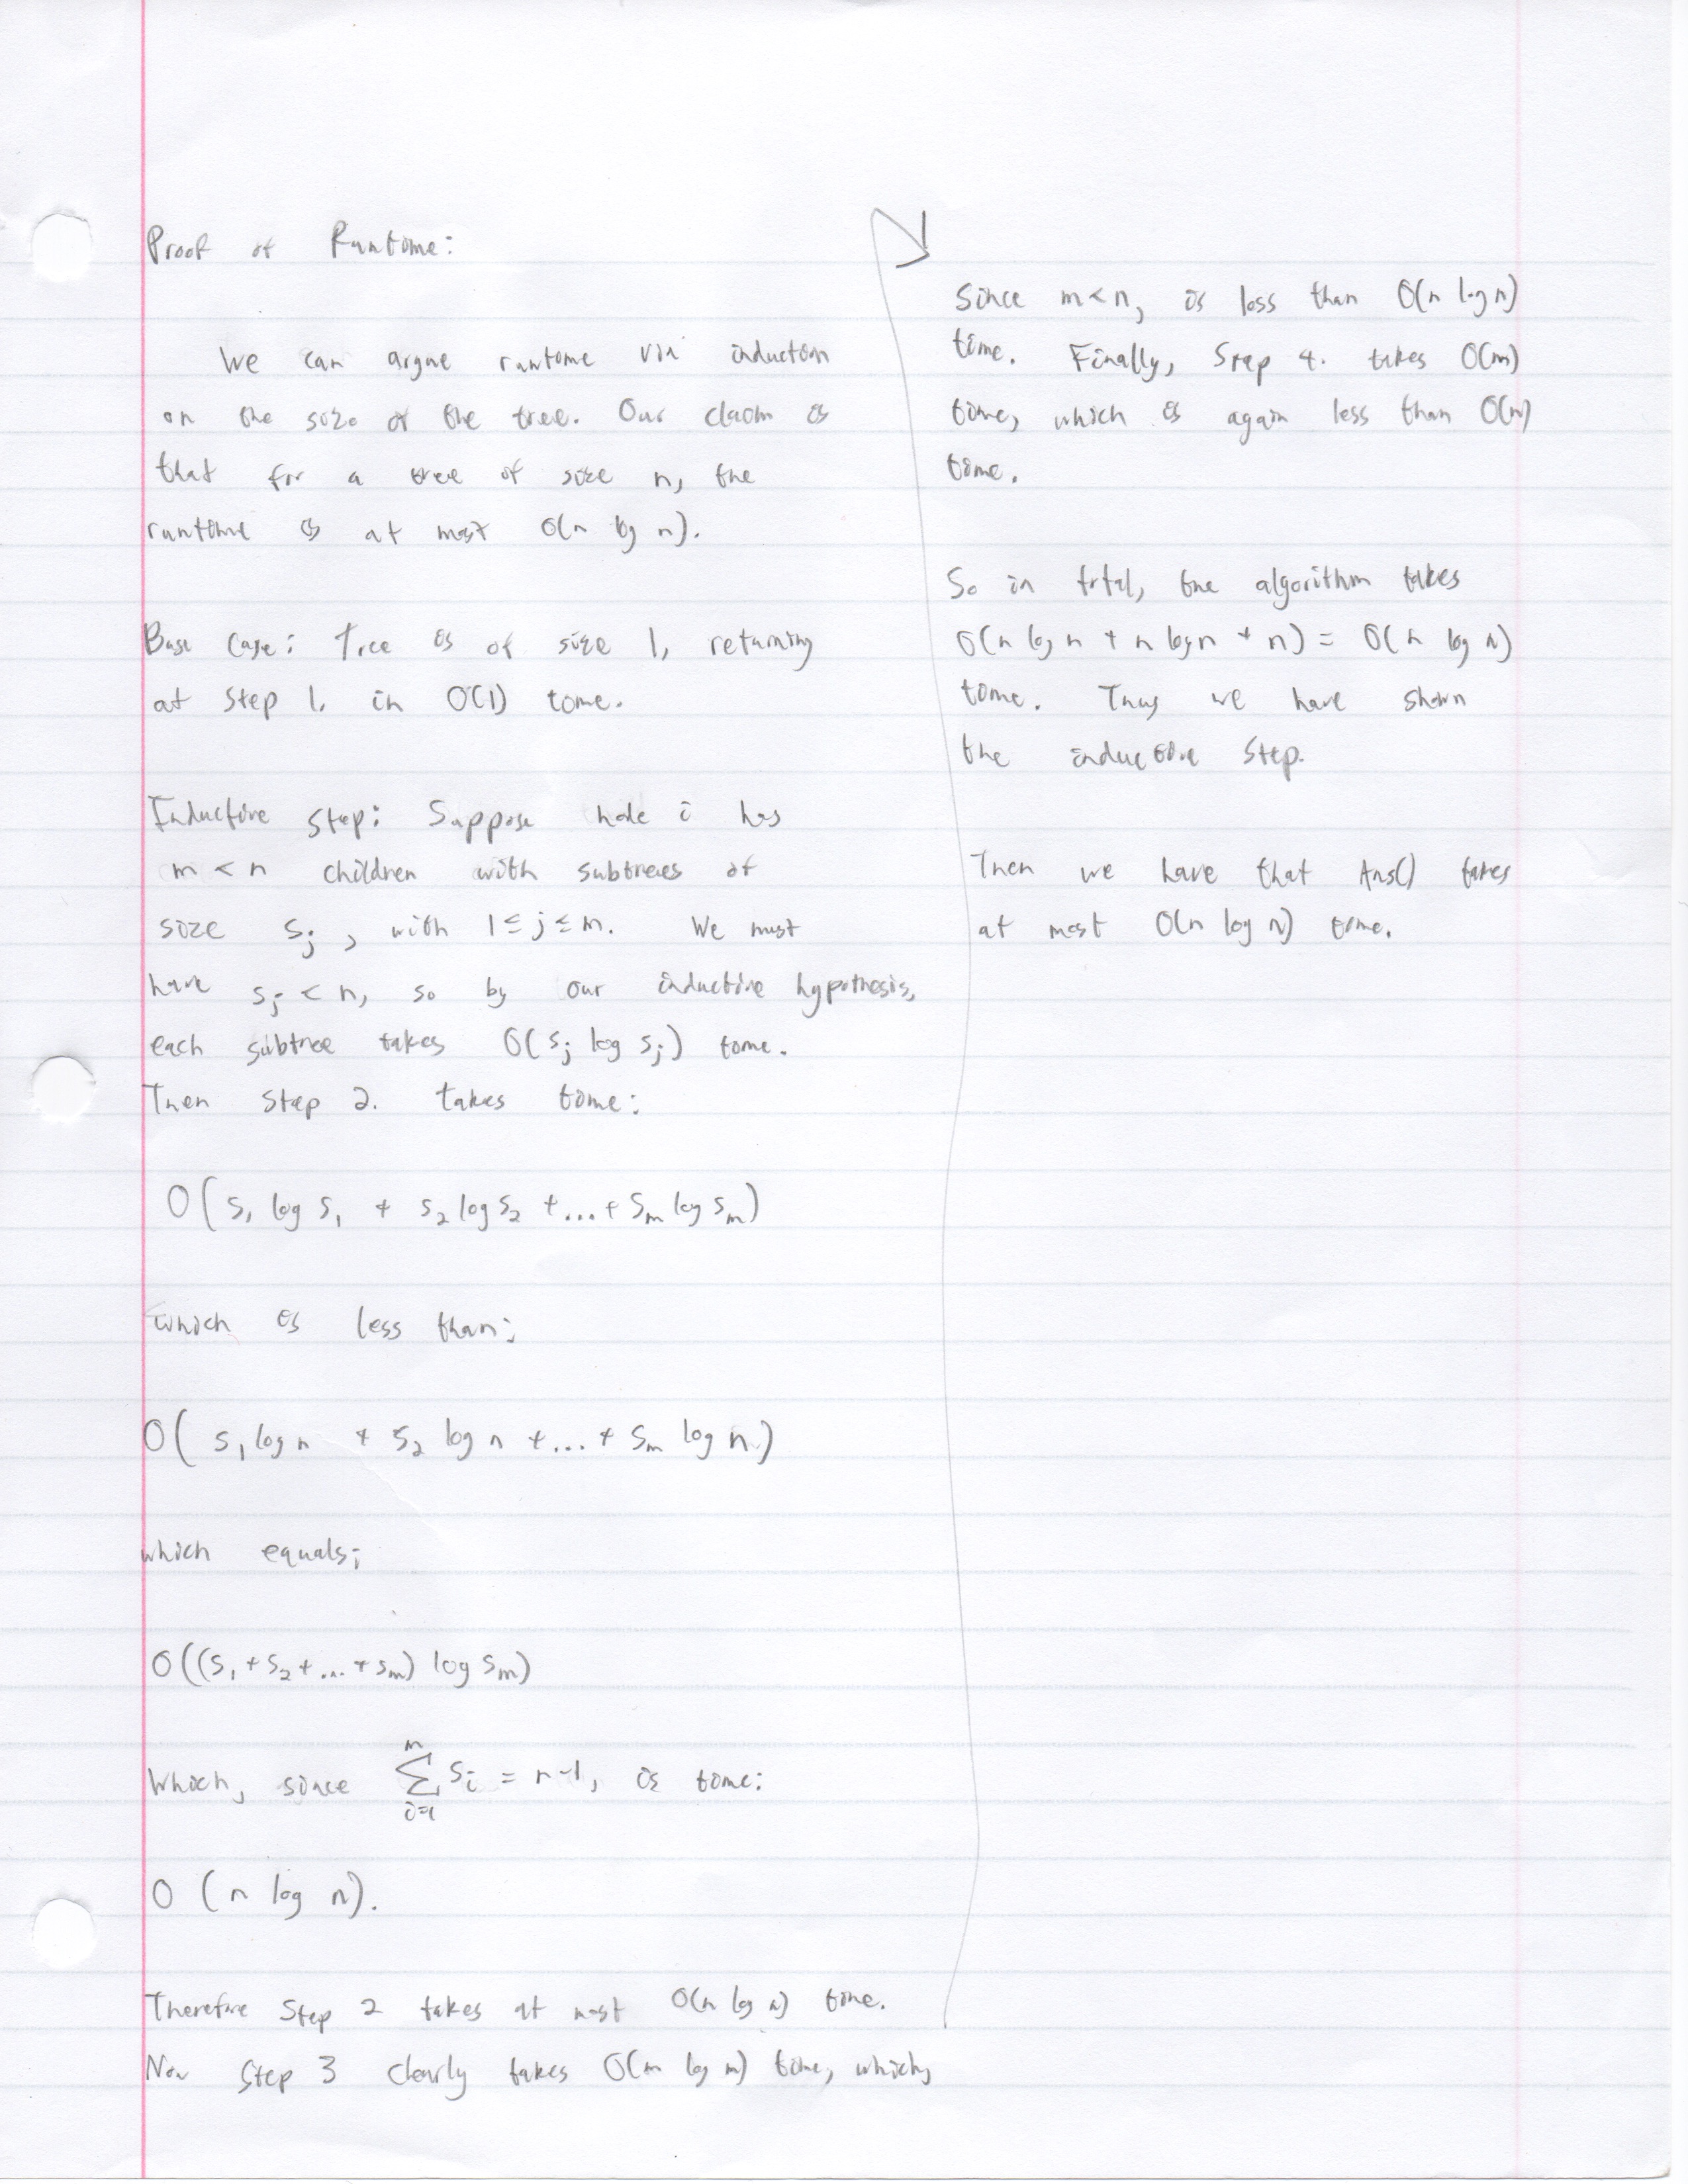 Proof of Runtime:
We can argue runtime via induction
on the size of the tree. Our claim is
that for a tree of size n, the
runtime is at most O(n log n).
Base Case: Tree is of size 1, returning
at Step 1. in O(1) time.
Inductive Step: Suppose node i has
m < n children with subtrees of
size s_j, with 1 ≤ j ≤ m. We must
have s_j < n, so by our inductive hypothesis,
each subtree takes O(s_j log s_j) time.
Then Step 2. takes time:
O(s_1 log s_1 + s_2 log s_2 + ... + s_m log s_m)
which is less than:
O(s_1 log n + s_2 log n + ... + s_m log n)
which equals:
O((s_1 + s_2 + ... + s_m) log s_m)
Which, since ∑_{i=1}^{m} s_i = n-1, is time:
O(n log n).
Therefore Step 2 takes at most O(n log n) time.
Now Step 3 clearly takes O(m log m) time, which,
since m < n, is less than O(n log n)
time. Finally, Step 4. takes O(m)
time, which is again less than O(n)
time.
So in total, the algorithm takes
O(n log n + n log n + n) = O(n log n)
time. Thus we have shown
the inductive step.
Then we have that Ans() takes
at most O(n log n) time.